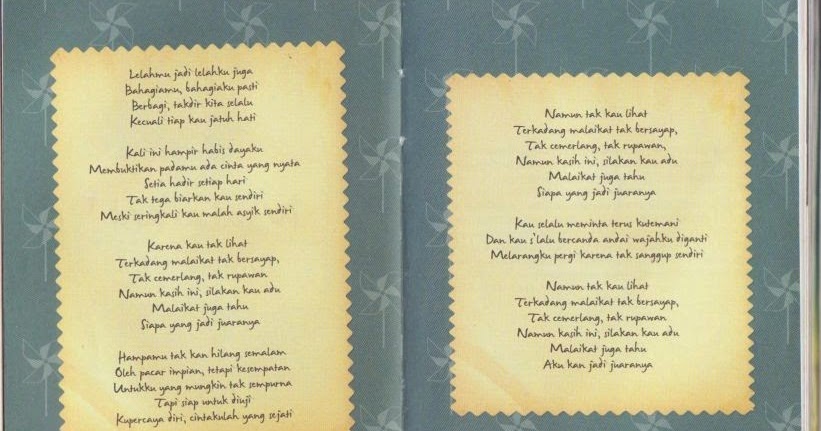 Lelahmu jadi lelahku juga
Bahagiamu, bahagiaku pasti
Berbagi, takdir kita selalu
Kecuali tiap kau jatuh hati
Kali ini hampir habis dayaku
Membuktikan padamu ada cinta yang nyata
Setia hadir setiap hari
Tak tega biarkan kau sendiri
Meski seringkali kau malah asyik sendiri
Karena kau tak lihat
Terkadang malaikat tak bersayap,
Tak cemerlang, tak rupawan
Namun kasih ini, silakan kau adu
Malaikat juga tahu
Siapa yang jadi juaranya
Hampamu tak kan hilang semalam
Oleh pacar impian, tetapi kesempatan
Untukku yang mungkin tak sempurna
Tapi siap untuk diuji
Kupercaya diri, cintakulah yang sejati
Namun tak kau lihat
Terkadang malaikat tak bersayap,
Tak cemerlang, tak rupawan,
Namun kasih ini, silakan kau adu
Malaikat juga tahu
Siapa yang jadi juaranya
Kau selalu meminta terus kutemani
Dan kau s'lalu bercanda andai wajahku diganti
Melarangku pergi karena tak sanggup sendiri
Namun tak kau lihat
Terkadang malaikat tak bersayap,
Tak cemerlang, tak rupawan
Namun kasih ini, silakan kau adu
Malaikat juga tahu
Aku kan jadi juaranya